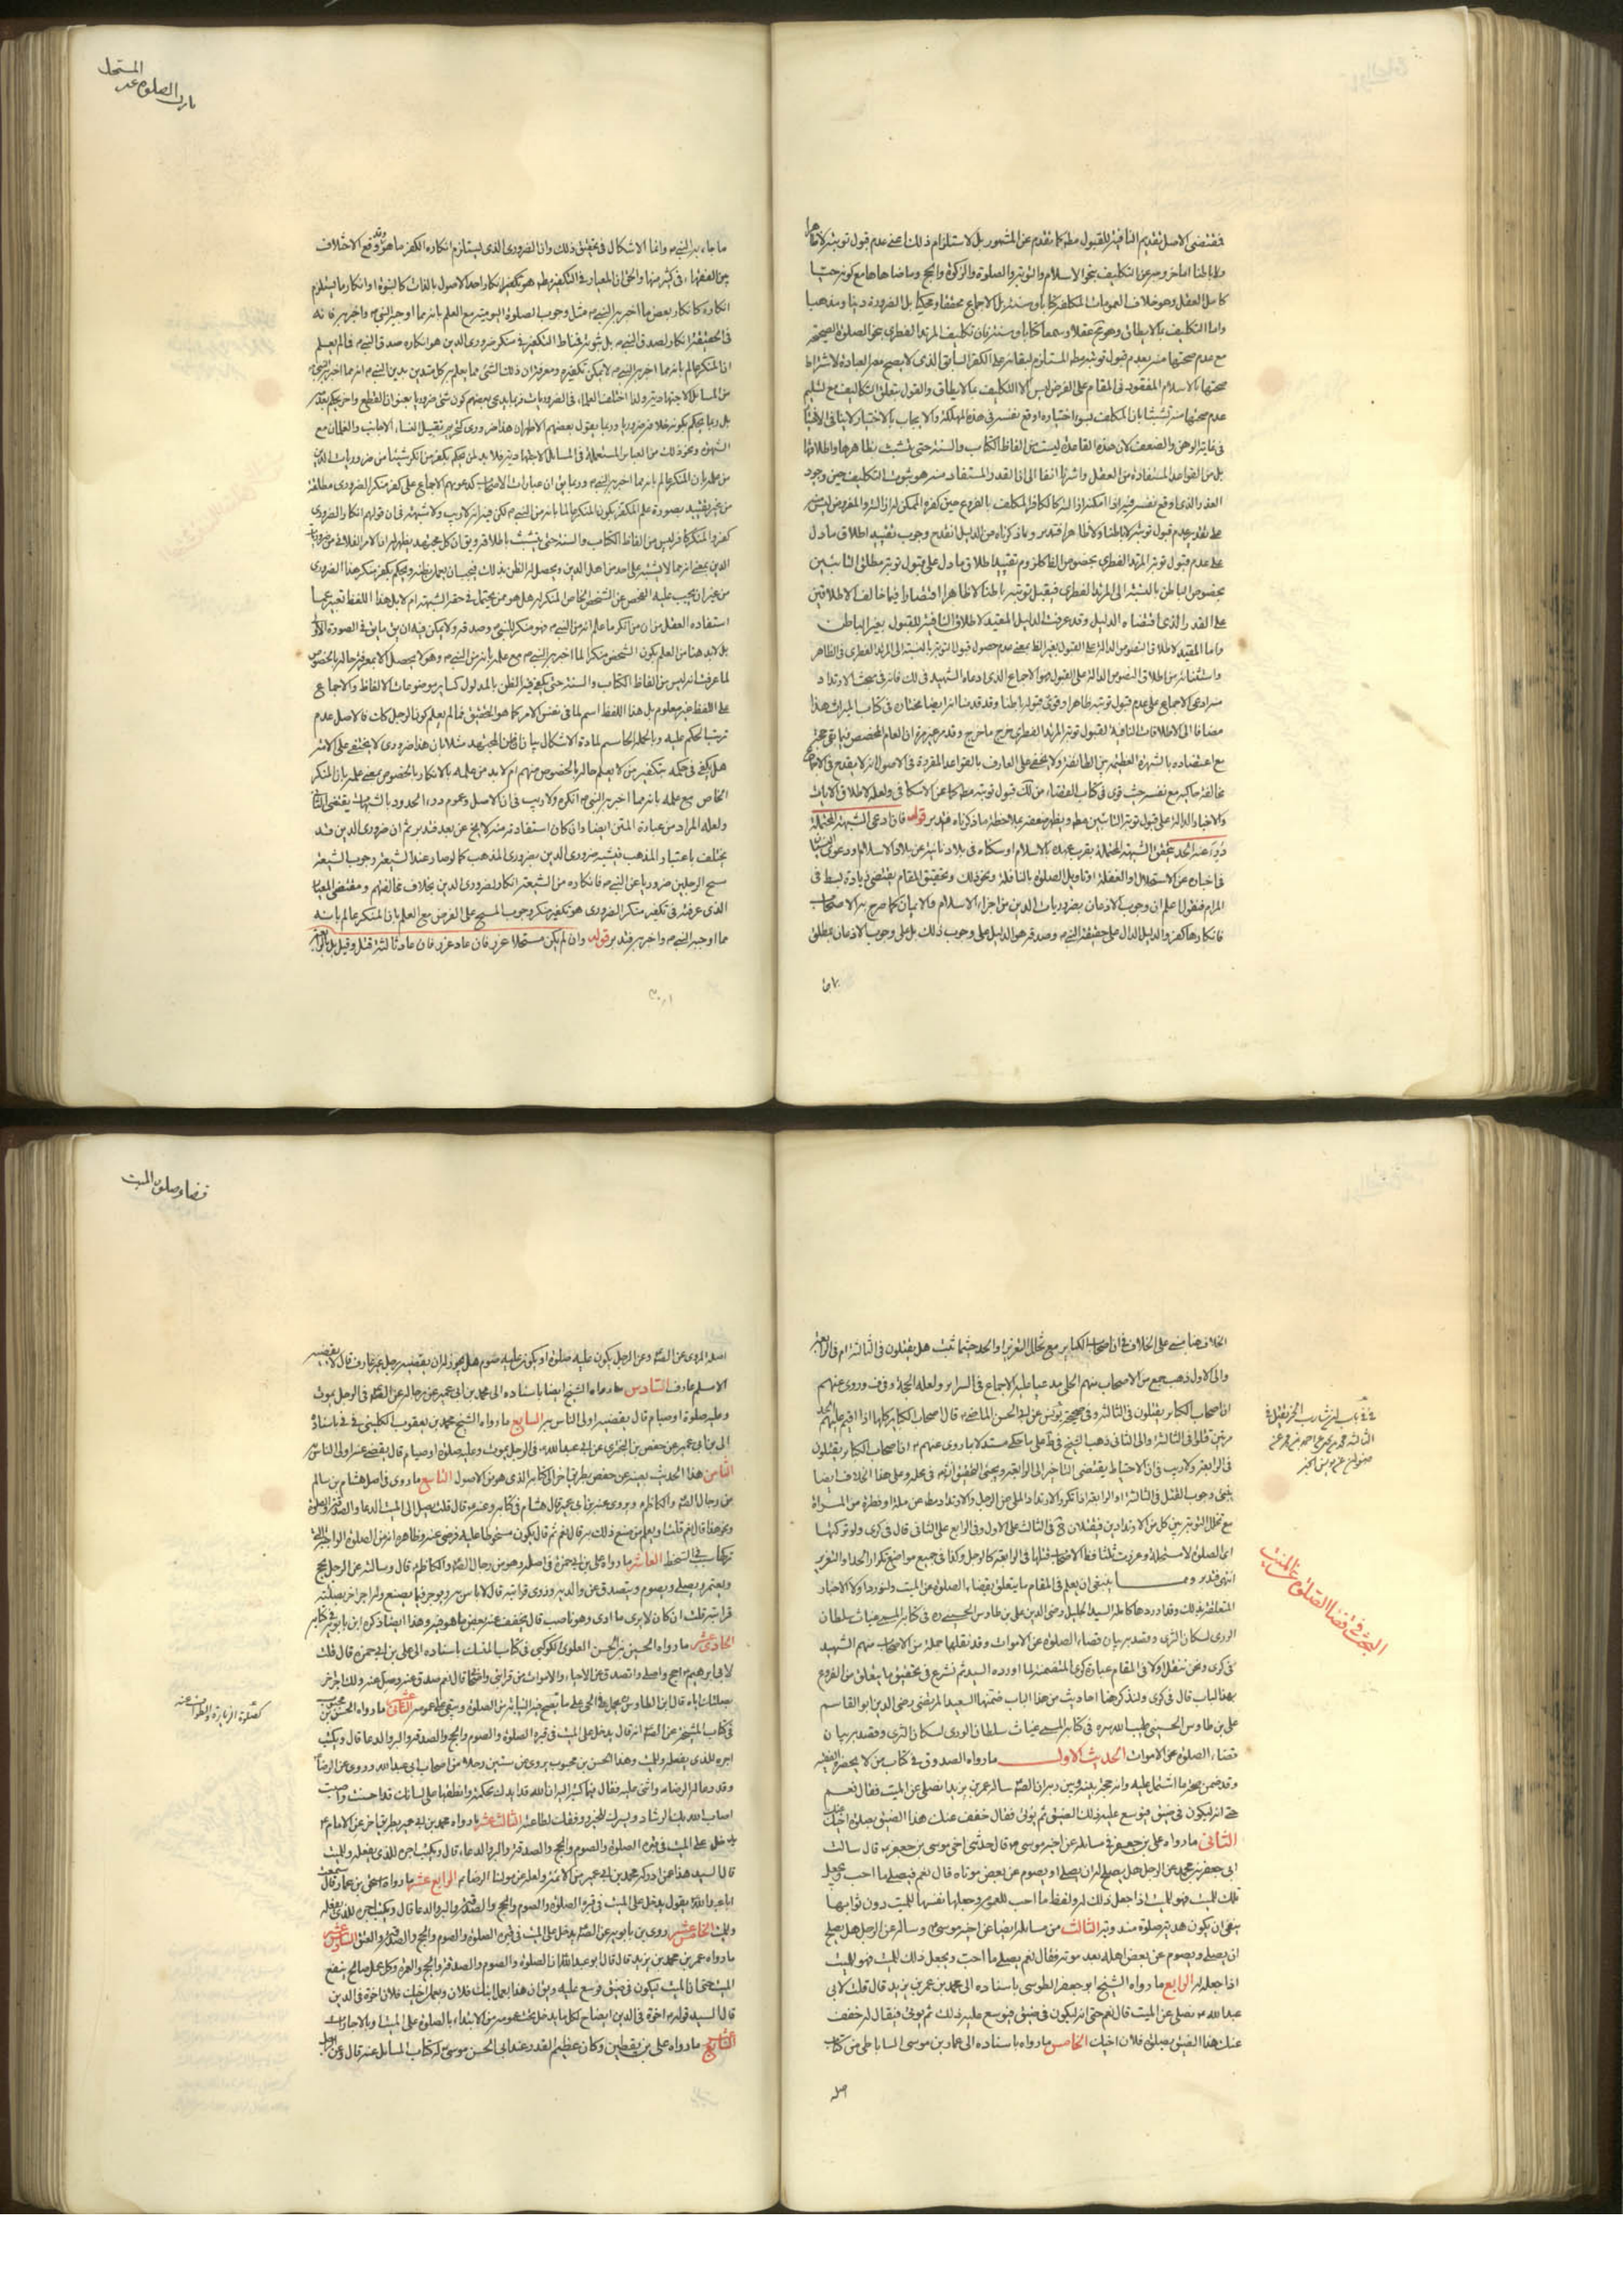 فمقتضى الاصل تقديم النافية للقبول مطلقا كما تقدم عن المشهور بل لاستلزام ذلك اعنى عدم قبول توبته لا ظاهرا
ولا باطنا اما خروجه عن التكليف بنحو الاسلام والتوبة والصلوة والزكوة والحج وما ضاهاها مع كونه حيا
كامل العقل وهو خلاف العمومات المكلفة كتابا وسنة بل الاجماع محققا ومحكيا بل الضرورة دينا ومذهبا
واما التكليف بما لا يطاق وهو قبيح عقلا وسمعا كتابا وسنة فان تكليف المرتد الفطرى بنحو الصلوة الصحيحة
مع عدم صحتها منه بعدم قبول توبته مطلقا المستلزم لبقائه على الكفر السابق الذى لا يصح معه العبادة لاشتراط
صحتها بالاسلام المفقود فى المقام على الفرض ليس الا التكليف بما لا يطاق والقول بتعلق التكاليف مع تسليم
عدم صحتها منه تشبثا بان المكلف بسوء اختياره اوقع نفسه فى هذه المهلكة والايجاب بالاختيار لا ينافى الاختيار
فى غاية الوهن والضعف لان هذه القاعدة ليست من الفاظ الكتاب والسنة حتى يتشبث بظاهرها واطلاقها
بل من القواعد المستفادة من العقل واشرنا انفا الى ان القدر المستفاد منه هو ثبوت التكليف حين وجود
على تقدير عدم قبول توبته لا باطنا ولا ظاهرا فتدبر وبما ذكرناه من الدليل انقدح وجوب تقييد اطلاق ما دل
على عدم قبول توبة المرتد الفطرى بخصوص الظاهر كلزوم تقييد اطلاق ما دل على قبول توبة مطلق التائبين
بخصوص الباطن بالنسبة الى المرتد الفطرى فيقبل توبته باطنا لا ظاهرا اقتصارا فيما خالف الاطلاقين
على القدر الذى اقتضاه الدليل وقد عرفت الدليل المقيد لاطلاق النافية للقبول بغير الباطن
واما المقيد لاطلاق النصوص الدالة على القبول بغير الظاهر بمعنى عدم حصول قبول التوبة بالنسبة الى المرتد الفطرى فى الظاهر
واستثنائه من اطلاق النصوص الدالة على القبول هو الاجماع الذى ادعاه الشهيد فى لك فانه فى بحث الارتداد
منه ادعى الاجماع على عدم قبول توبته ظاهرا وقوى قبوله باطنا وقد قدمنا انه ايضا مختاره فى كتاب الميراث هذا
مضافا الى الاطلاقات النافية لقبول توبة المرتد الفطرى خرج ما خرج وقد مر غير مرة ان العام المخصص فيما بقى حجة
مع اعتضاده بالشهرة العظيمة بين الطائفة ولا يخفى على العارف بالقواعد المقررة فى الاصول انه لا يقدح فى الاجماع
مخالفة حاكيه مع نفسه حيث قوى فى كتاب القضاء من لك قبول توبته مطلقا كما عن الاسكافى ولعله لاطلاق الايات
والاخبار الدالة على قبول توبة التائبين مطلقا ويظهر ضعفه بملاحظة ما ذكرناه فتدبر قوله فان ادعى الشبهة المحتملة
درء عنه الحد تحقق الشبهة المحتملة بقرب عهده بالاسلام او سكناه فى بلاد نائية عن بلاد الاسلام ودعوى النسيان
فى اخباره عن الاستحلال او الغفلة او تاويل الصلوة بالنافلة ونحو ذلك وتحقيق المقام يقتضى زيادة بسط فى
المرام فنقول اعلم ان وجوب الاذعان بضروريات الدين من اجزاء الاسلام والايمان كما صرح به الاصحاب
فانكارها كفر والدليل الدال على حقيقة النبى ص وصدقه هو الدليل على وجوب ذلك بل على وجوب الاذعان بمطلق
المستحل
تارك الصلوة عمدا
ما جاء به النبى ص وانما الاشكال فى تحقيق ذلك وان الضرورى الذى يستلزم انكاره الكفر ما هو وقد وقع الاختلاف
بين الفقهاء فى كثير منها والحق ان المعيار فى التكفير مطلقا هو تكفير انكار واحد الاصول بالذات كالنبوة او انكار ما يستلزم
انكاره كانكار بعض ما اخبر به النبى ص مثل وجوب الصلوة اليومية مع العلم بانه مما اوحى النبى ص واخبر به فانه
فى الحقيقة انكار لصدق النبى ص بل ثبوته فمناط التكفير فى منكر ضرورى الدين هو انكاره صدق النبى ص فما لم يعلم
ان المنكر عالم بانه مما اخبر به النبى ص لا يمكن تكفيره ومعرفة ان ذلك الشئ مما يعلم به كل متدين بدين النبى ص انه مما اخبر به النبى ص
من المسائل الاجتهادية ولذا اختلف العلماء فى الضروريات فربما يدعى بعضهم كون شئ ضروريا بعنوان القطع واخر يحكم بعدمه
بل ربما يحكم بكونه خلاف ضرورى وربما يقول بعضهم الاظهر ان هذا ضرورى كحرمة تقبيل النساء الاجانب والغلمان مع
الشهوة ونحو ذلك من العبائر المستعملة فى المسائل الاجتهادية فلا بد لمن يحكم بكفر من انكر شيئا من ضروريات الدين
من علمه بان المنكر عالم بانه مما اخبر به النبى ص وربما يق ان عبارات الاصحاب كدعويهم الاجماع على كفر منكر الضرورى مطلقة
من غير تقييد بصورة علم المكفر بكون المنكر عالما بانه من النبى ص لكن فيه انه لا ريب ولا شبهة فى ان قولهم انكار الضرورى
الدين بمعنى انه مما لا يشتبه على احد من اهل الدين ويحصل له الظن بذلك فيجب ان يعمل بظنه ويحكم بكفر منكر هذا الضرورى
من غير ان يجب عليه الفحص عن الشخص الخاص المنكر انه هل هو ممن يحتمل فى حقه الشبهة ام لا بل هذا اللفظ تعبير عما
استفاده العقل من ان من انكر ما علم انه من النبى ص فهو منكر للنبى ص وصدقه ولا يمكن فيه ان يق ما يق فى الصورة الاولى
بل لا بد هنا من العلم بكون الشخص منكرا لما اخبر به النبى ص مع علمه بانه من النبى ص وهو لا يحصل الا بمعرفة حاله بالخصوص
لما عرفت انه ليس من الفاظ الكتاب والسنة حتى يكفى فيه الظن بالمدلول كساير موضوعات الالفاظ والاجماع
على اللفظ غير معلوم بل هذا اللفظ اسم لما فى نفس الامر كما هو الحقيق فما لم يعلم كون الرجل كك فالاصل عدم
ترتب الحكم عليه وبالجملة الحاسم لمادة الاشكال بيان ان ظن المجتهد مثلا بان هذا ضرورى لا يختفى على الاكثر
هل يكفى فى حكمه بتكفير من لا يعلم حاله بالخصوص منهم ام لا بد من علمه بالانكار بالخصوص بمعنى علمه بان المنكر
الخاص مع علمه بانه مما اخبر به النبى ص انكره ولا ريب فى ان الاصل وعموم درء الحدود بالشبهات يقتضى الثانى
ولعله المراد من عبارة المتن ايضا وان كان استفادته منه لا يخ عن بعد فتدبر ثم ان ضرورى الدين قد
يختلف باعتبار المذهب فيشبه ضرورى الدين بضرورى المذهب كما لو صار عند الشيعة وجوب الشيعة
مسح الرجلين ضروريا عن النبى ص فانكاره من الشيعة انكار لضرورى الدين بخلاف مخالفهم ومقتضى المعيار
الذى عرفته فى تكفير منكر الضرورى هو تكفير منكر وجوب المسح على الفرض مع العلم بان المنكر عالم بانه
مما اوحى النبى ص واخبر به فتدبر قوله وان لم يكن مستحلا عزر فان عاد عزر فان عاد ثالثة قتل وقيل بل فى الرابعة
الخلاف هنا مبنى على الخلاف فى ان اصحاب الكبائر مع تخلل التعزير او الحد حيثما ثبت هل يقتلون فى الثالثة ام فى الرابعة
والى الاول ذهب جمع من الاصحاب منهم الحلى مدعيا عليه الاجماع فى السرائر ولعله الحجة وفى وروى عنهم
ان اصحاب الكبائر يقتلون فى الثالثة وفى صحيحة يونس عن ابى الحسن الماضى ع قال اصحاب الكبائر كلها اذا اقيم عليهم الحد
مرتين قتلوا فى الثالثة والى الثانى ذهب الشيخ فى ط على ما حكى مستدلا بما روى عنهم ع ان اصحاب الكبائر يقتلون
فى الرابعة ولا ريب فى ان الاحتياط يقتضى التاخير الى الرابعة ويجئ التحقيق انشاء الله فى محله وعلى هذا الخلاف ايضا
مع تخلل التوبة بين كل من الارتدادين فيقتلان فى الثالث على الاول وفى الرابع على الثانى قال فى كرى ولو تركها
اى الصلوة لا مستحلا وعزرت ثلثا فظاهر الاصحاب قتلها فى الرابعة كالرجل وكذا فى جميع مواضع تكرار الحد او التعزير
انتهى فتدبر ومما ينبغى ان يعلم فى المقام ما يتعلق بقضاء الصلوة عن الميت ولنورد اولا الاخبار
المتعلقة بذلك وقد اوردها كاملة السيد الجليل رضى الدين على بن طاوس الحسينى ره فى كتابه المسمى غياث سلطان
الورى لسكان الثرى وقصد به بيان قضاء الصلوة عن الاموات وقد نقلها جملة من الاصحاب منهم الشهيد
فى كرى ونحن ننقل اولا فى المقام عبارة كرى المتضمنة لما اورده السيد ثم نشرع فى تحقيق ما يتعلق من الفروع
بهذا الباب قال فى كرى ولنذكر هنا احاديث من هذا الباب ضمنها السعيد المرتضى رضى الدين ابو القاسم
على بن طاوس الحسينى طيب الله سره فى كتابه المسمى غياث سلطان الورى لسكان الثرى وقصد به بيان
قضاء الصلوة عن الاموات الحديث الاول ما رواه الصدوق فى كتاب من لا يحضره الفقيه
وقد ضمن صحة ما اشتمل عليه وانه حجة بينه وبين ربه ان الصه ساله عمر بن يزيد انصلى عن الميت فقال نعم
حتى انه ليكون فى ضيق فيوسع عليه ذلك الضيق ثم يؤتى فقال خفف عنك هذا الضيق بصلوة اخيك
الثانى ما رواه على بن جعفر فى مسائله عن اخيه موسى ع قال حدثنى اخى موسى بن جعفر ع قال سالت
ابى جعفر بن محمد عن الرجل هل يصلح له ان يصلى او يصوم عن بعض موتاه قال نعم فيصلى ما احب ويجعل
تلك للميت فهو للميت اذا جعل ذلك له ولفظ ما احب للعموم وجعلها نفسها للميت دون ثوابها
ينفى ان يكون هدية صلوة مندوبة الثالث من مسائله ايضا عن اخيه موسى ع وساله عن الرجل هل يصلح
ان يصلى ويصوم عن بعض اهله بعد موته فقال نعم يصلى ما احب ويجعل ذلك للميت فهو للميت
اذا جعله له الرابع ما رواه الشيخ ابو جعفر الطوسى باسناده الى محمد بن عمر بن يزيد قال قلت لابى
عبد الله ع نصلى عن الميت قال نعم حتى انه ليكون فى ضيق فيوسع عليه ذلك ثم يؤتى فيقال له خفف
عنك هذا الضيق بصلوة فلان اخيك الخامس ما رواه باسناده الى عمار بن موسى الساباطى من كتاب
اصله
البحث فى قضاء الصلوة عن الميت
قضاء صلوة الميت
اصله المروى عن الصه وعن الرجل يكون عليه صلوة او يكون عليه صوم هل يجوز له ان يقضيه رجل غير عارف قال لا يقضيه
الا مسلم عارف السادس ما رواه الشيخ ايضا باسناده الى محمد بن ابى عمير عن رجاله عن الصه فى الرجل يموت
وعليه صلوة او صيام قال يقضيه اولى الناس به السابع ما رواه الشيخ محمد بن يعقوب الكلينى فى فى باسناده
الى ابن ابى عمير عن حفص بن البخترى عن ابى عبد الله ع فى الرجل يموت وعليه صلوة او صيام قال يقضى عنه اولى الناس به
الثامن هذا الحديث بعينه عن حفص بطريق اخر الى كتابه الذى هو من الاصول التاسع ما روى فى اصل هشام بن سالم
من رجال الصه والكاظم ع ويروى عنه ابن ابى عمير قال هشام فى كتابه وعنه ع قال قلت يصل الى الميت الدعاء والصدقة والصلوة
ونحو هذا قال نعم قلت او يعلم من صنع ذلك به قال نعم ثم قال يكون مسخوطا عليه فيرضى عنه وظاهره انه من الصلوة الواجبة التى
تركها سبب فى السخط العاشر ما رواه على بن ابى حمزة فى اصله وهو من رجال الصه والكاظم ع قال وسالته عن الرجل يحج
ويعتمر ويصلى ويصوم ويتصدق عن والديه وذوى قرابته قال لا باس به يوجر فيما يصنع وله اجر اخر بصلته
قرابته قلت ان كان لا يرى ما ارى وهو ناصب قال يخفف عنه بعض ما هو فيه وهذا ايضا ذكره ابن بابويه فى كتابه
الحادى عشر ما رواه الحسين بن الحسن العلوى الكوكبى فى كتاب المنسك باسناده الى على بن ابى حمزة قال قلت
لابى ابراهيم ع احج واصلى واتصدق عن الاحياء والاموات من قرابتى واصحابى قال نعم صدق عنه وصل عنه ولك اجر اخر
بصلتك اياه قال ابن الطاوس ره يحمل فى الحى على ما تصح فيه النيابة من الصلوة ويبقى على عمومه الثانى عشر ما رواه الحسن بن محبوب
فى كتاب المشيخة عن الصه انه قال يدخل على الميت فى قبره الصلوة والصوم والحج والصدقة والبر والدعاء قال ويكتب
اجره للذى يفعله وللميت وهذا الحسن بن محبوب يروى عن ستين رجلا من اصحاب ابى عبد الله وروى عن الرضا ع
وقد دعا له الرضا ع واثنى عليه فقال فيما كتبه اليه ان الله قد ايدك بحكمة وانطقها على لسانك قد احسنت واصبت
اصاب الله بك الرشاد ويسرك للخير ووفقك لطاعته الثالث عشر ما رواه محمد بن ابى عمير بطريق اخر عن الامام ع
يدخل على الميت فى قبره الصلوة والصوم والحج والصدقة والبر والدعاء قال ويكتب اجره للذى يفعله وللميت
قال السيد هذا عمن ادركه محمد بن ابى عمير من الائمة ولعله عن مولينا الرضا ع الرابع عشر ما رواه اسحق بن عمار قال سمعت
ابا عبد الله ع يقول يدخل على الميت فى قبره الصلوة والصوم والحج والصدقة والبر والدعاء قال ويكتب اجره للذى يفعله
وللميت الخامس عشر روى ابن بابويه عن الصه يدخل على الميت فى قبره الصلوة والصوم والحج والصدقة والعتق السادس عشر
ما رواه عمر بن محمد بن يزيد قال قال ابو عبد الله ع ان الصلوة والصوم والصدقة والحج والعمرة وكل عمل صالح ينفع
الميت حتى ان الميت ليكون فى ضيق فيوسع عليه ويق ان هذا بعمل ابنك فلان وبعمل اخيك فلان اخوه فى الدين
قال السيد قوله ع اخوه فى الدين ايضاح لكل ما يدخل تحت عمومه من الابتداء بالصلوة على الميت او بالاجارات
السابع عشر ما رواه على بن يقطين وكان عظيم القدر عند ابى الحسن موسى ع له كتاب المسائل عنه قال وعن الرجل